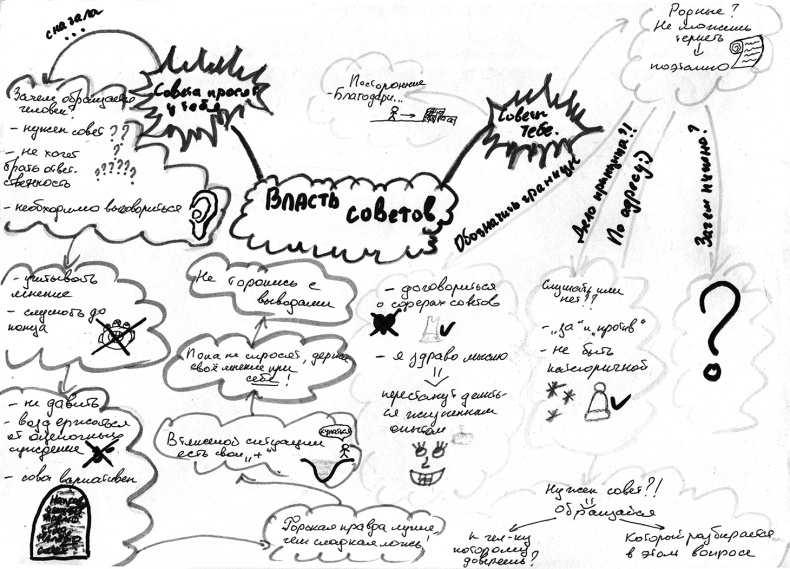 сначала
...
Советы просят
у тебя
Зачем обращается
человек?
- нужен совет ??
- не хочет
брать ответ-
ственность
?
????
?
- необходимо выговориться
- учитывать
мнение
- слушать до
конца
- не давить
- воздержаться
от оценочных
суждение
- совет вариативен
Горькая правда лучше,
чем сладкая ложь!
В тяжёлой ситуации
есть свои „+"
купаться
Пока не спросят, держи
своё мнение при
себе!
Не торопись с
выводами
ВЛАСТЬ
советов
Посторонние
- Благодари...
Советы
тебе.
Родные?
Не можешь
терпеть
поэтапно
Обозначить границы
- договориться
о сферах советов
- я здраво мыслю
перестанут делить-
ся жизненным
опытом
Дело принципа?!
По адресу:)
Слушать или
нет??
- „за" и „против"
- не быть
категоричной
Зачем нужно?
?
Нужен совет?!
Обращайся
к чел-ку
которому
доверяешь?
Который разбирается
в этом вопросе